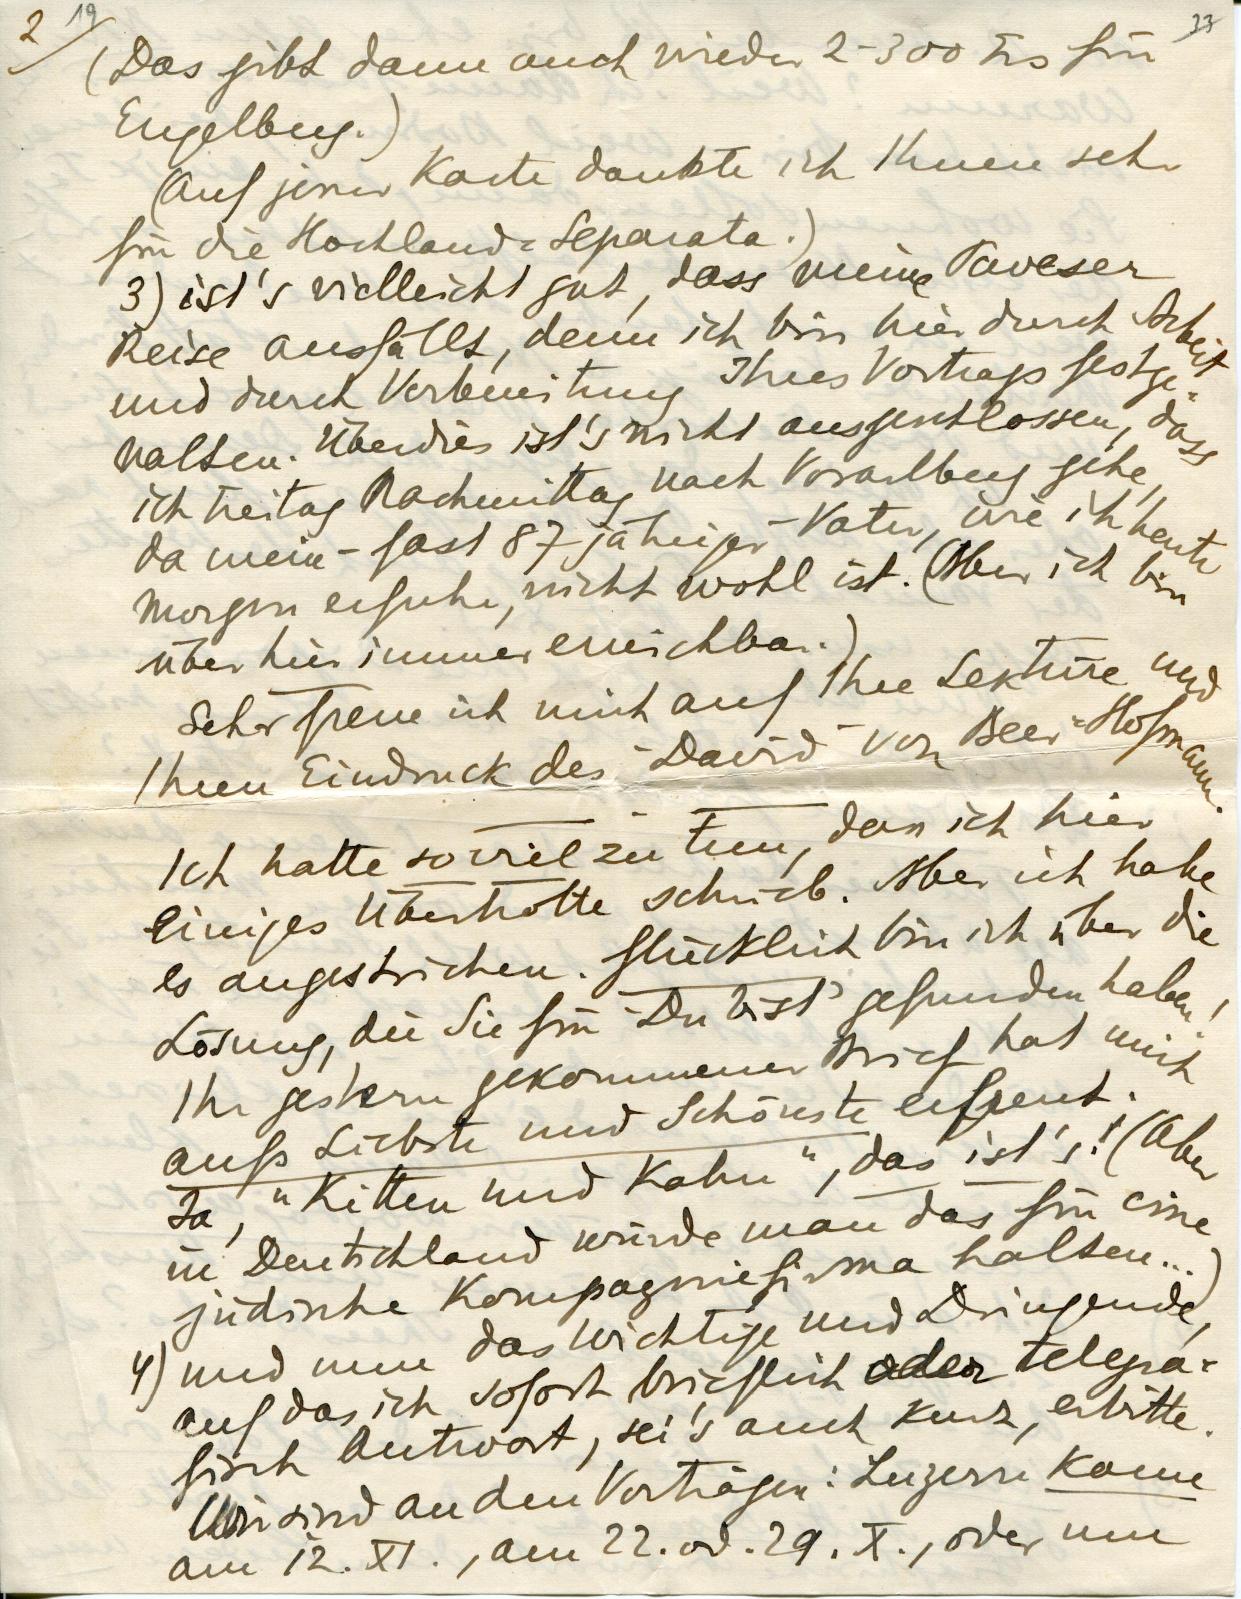 2 19 33
(Das gibt dann auch wieder 2-300 frs für
Engelberg.)
(Auf jener Karte dankte ich Ihnen sehr
für die Hochland-Separata.)
3) ist's vielleicht gut, dass meine Davoser
Reise ausfällt, denn ich bin hier durch Arbeit
und durch Vorbereitung Ihres Vortrags festge-
halten. Überdies ist's nicht ausgeschlossen, dass
ich Freitag Nachmittag nach Vorarlberg gehe,
da mein - fast 87 jähriger - Vater, wie ich heute
morgen erfuhr, nicht wohl ist. (Aber ich bin
über hier immer erreichbar.)
Sehr freue ich mich auf Ihre Lektüre und
Ihren Eindruck des "David" von Beer-Hofmann.
Ich hatte soviel zu tun, dass ich hier
einiges Überholte schrieb. Aber ich habe
es angestrichen. Glücklich bin ich über die
Lösung, die Sie für "Du bist" gefunden haben!
Ihr gestern gekommener Brief hat mich
aufs Liebste und Schönste erfreut.
Ja, "Kitten und Kahn", das ist's! (Aber
in Deutschland würde man das für eine
jüdische Kompagniefirma halten...)
4) und nun das Wichtige und Dringende,
auf das ich sofort brieflich oder telegra-
fisch Antwort, sei's auch kurz, erbitte.
Wir sind an den Vorträgen: Luzern käme
am 12. XI., am 22. od. 29. X., oder nun